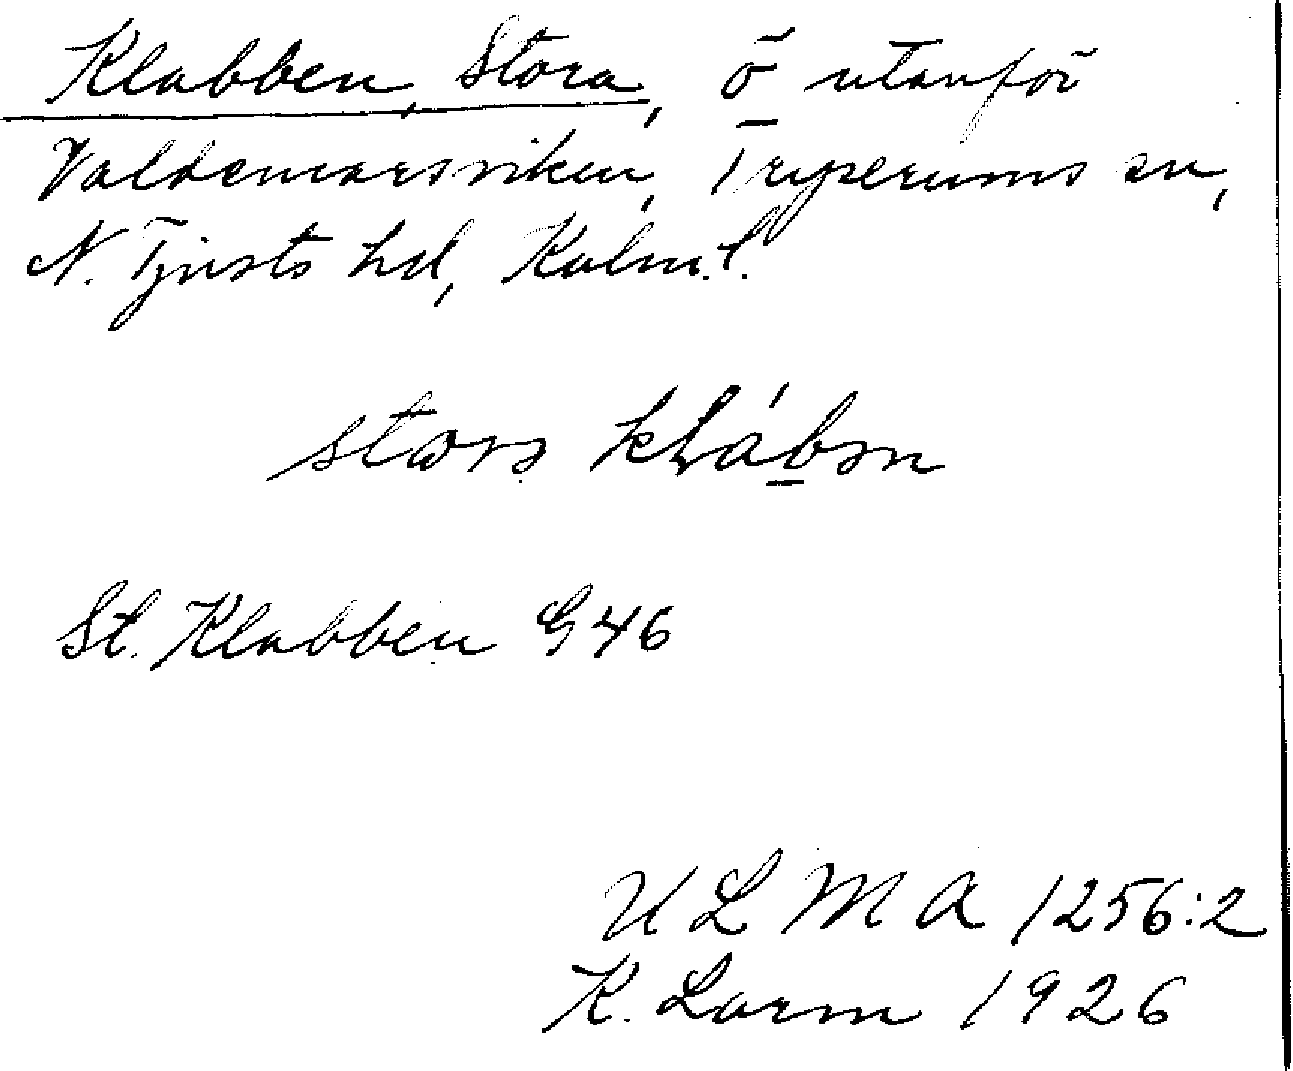 Klabben, Stora, ö utanför
Valdemarsviken, Tryserums sn,
N. Tjusts hd, Kalm. l.
St. Klabben G46
ULMA 1256:2
K. Larm 1926